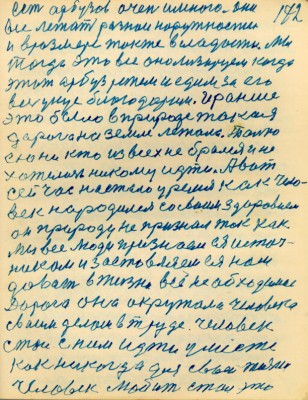 Ест арбузов очен и много. они
все лежат разной наружности
и в розмере также в сладости. Мы
тогда это все ополизируем когда
этот арбуз режем и едим за его
вкус благодарим. И раньше
это было в природе такая
дорога на земли лежала. Толко
сю ни кто из всех не брался и не
хотел ни кому идти. А вот
сейчас настало время как чело-
век народился со своим здоровием
он природу не признал так как
мы все люди признаемся источ-
ником и заставляемся нам
довать в жизни всё не обходимое
Дорога она окружала человека
своим делом в труде. Человек
стал с ним идти уместе
как никогда для своей жизни
Человек любит стал это
142